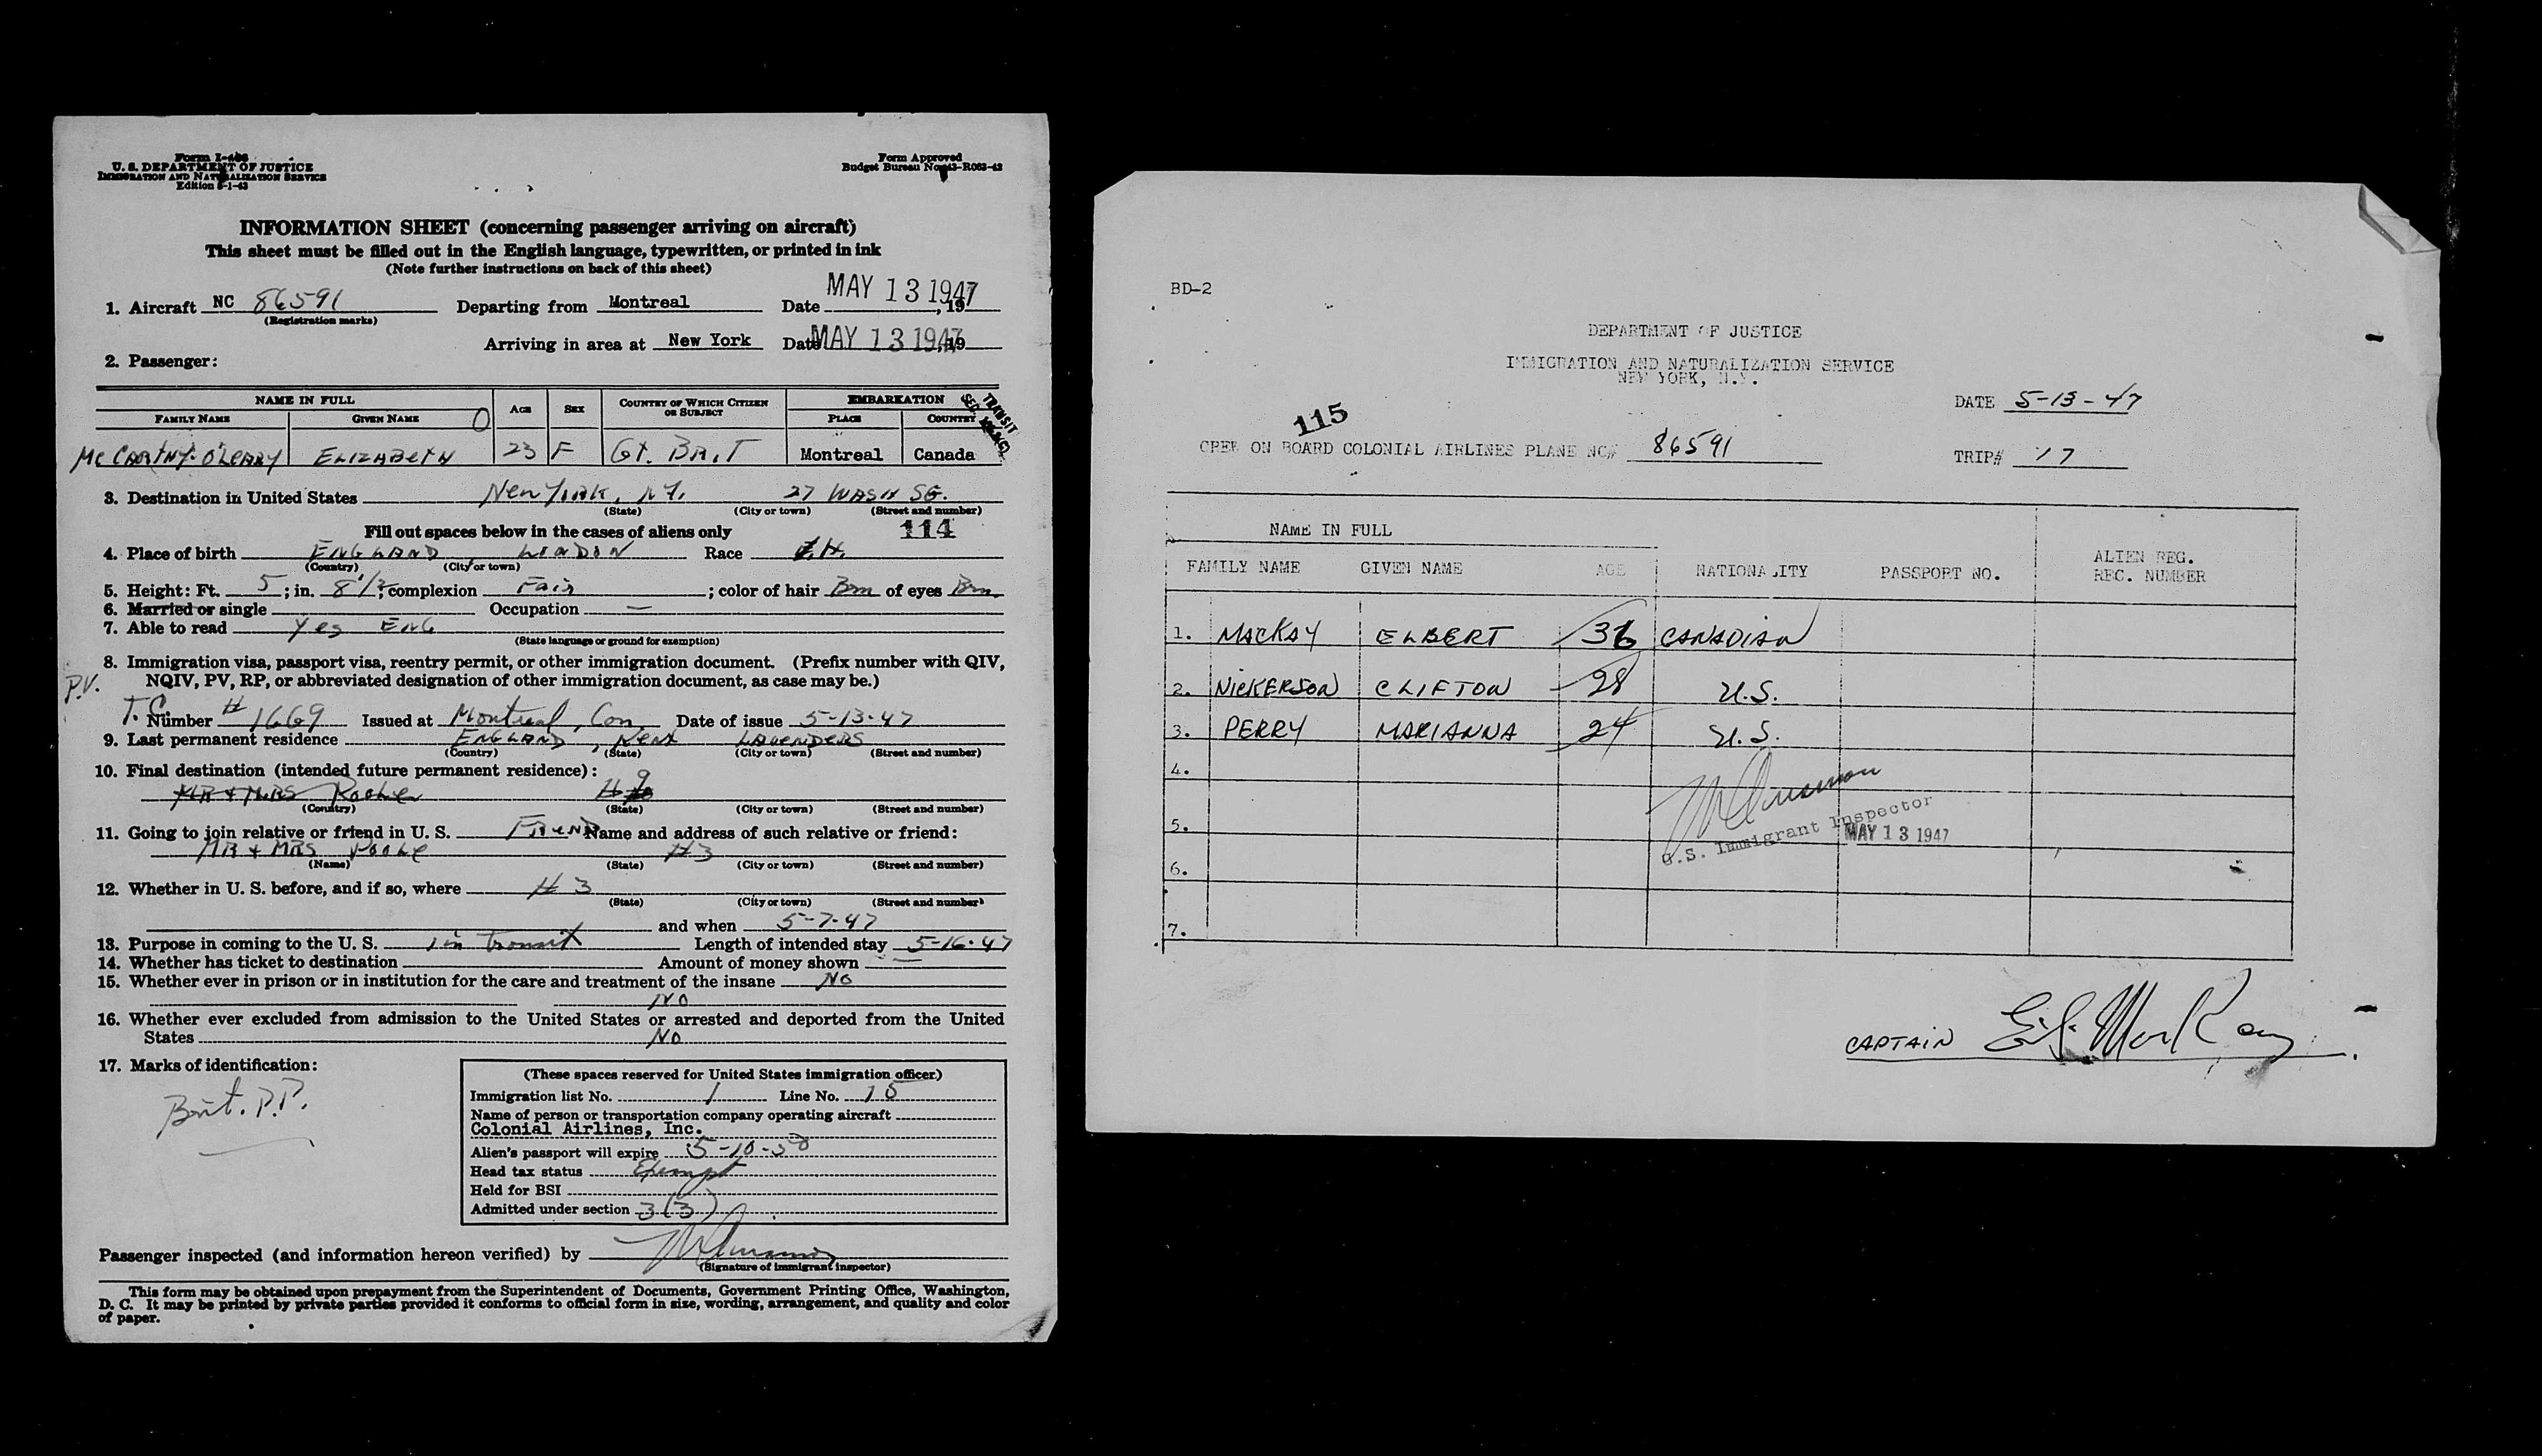 Form I-466
U. S. DEPARTMENT OF JUSTICE
IMMIGRATION AND NATURALIZATION SERVICE
Edition 5-1-43
Form Approved
Budget Bureau No. 43-R063-42
INFORMATION SHEET (concerning passenger arriving on aircraft)
This sheet must be filled out in the English language, typewritten, or printed in ink
(Note further instructions on back of this sheet)
1. Aircraft NC 86591 Departing from Montreal Date MAY 13 1947, 19
(Registration marks)
Arriving in area at New York Date MAY 13 1947, 19
2. Passenger:
NAME IN FULL
FAMILY NAME GIVEN NAME O AGE SEX COUNTRY OF WHICH CITIZEN OR SUBJECT EMBARKATION PLACE COUNTRY
TRANSIT
McCARTHY-O'LEARY ELIZABETH 23 F Gt. BRIT Montreal Canada
3. Destination in United States New York, N.Y. 27 WASH SQ.
(State) (City or town) (Street and number)
Fill out spaces below in the cases of aliens only 114
4. Place of birth ENGLAND LONDON Race
(Country) (City or town)
5. Height: Ft. 5; in. 8 1/2; complexion Fair; color of hair Brn of eyes Brn
6. Married or single Occupation —
7. Able to read Yes ENG
(State language or ground for exemption)
8. Immigration visa, passport visa, reentry permit, or other immigration document. (Prefix number with QIV,
P.V. NQIV, PV, RP, or abbreviated designation of other immigration document, as case may be.)
T.C. Number # 1669 Issued at Montreal, Can. Date of issue 5-13-47
9. Last permanent residence ENGLAND, Kent LAVENDERS
(Country) (State) (City or town) (Street and number)
10. Final destination (intended future permanent residence):
MR & MRS # 9
(Country) (State) (City or town) (Street and number)
11. Going to join relative or friend in U. S. FRIEND Name and address of such relative or friend:
MR & MRS POOLE #3
(Name) (State) (City or town) (Street and number)
12. Whether in U. S. before, and if so, where #3
(State) (City or town) (Street and number)
and when 5-7-47
13. Purpose in coming to the U. S. in transit Length of intended stay 5-16-47
14. Whether has ticket to destination Amount of money shown —
15. Whether ever in prison or in institution for the care and treatment of the insane No
NO
16. Whether ever excluded from admission to the United States or arrested and deported from the United
States NO
17. Marks of identification:
Brit. P.P.
(These spaces reserved for United States immigration officer)
Immigration list No. 1 Line No. 15
Name of person or transportation company operating aircraft
Colonial Airlines, Inc.
Alien's passport will expire 5-10-50
Head tax status Exempt
Held for BSI
Admitted under section 3(3)
Passenger inspected (and information hereon verified) by
(Signature of immigrant inspector)
This form may be obtained upon prepayment from the Superintendent of Documents, Government Printing Office, Washington,
D. C. It may be printed by private parties provided it conforms to official form in size, wording, arrangement, and quality and color
of paper.
BD-2
DEPARTMENT OF JUSTICE
IMMIGRATION AND NATURALIZATION SERVICE
NEW YORK, N.Y.
DATE 5-13-47
115
CREW ON BOARD COLONIAL AIRLINES PLANE NC# 86591
TRIP# 17
NAME IN FULL
FAMILY NAME GIVEN NAME AGE NATIONALITY PASSPORT NO. ALIEN REG. REC. NUMBER
1. MACKAY ELBERT 36 CANADIAN
2. NICKERSON CLIFTON 28 U.S.
3. PERRY MARIANNA 24 U.S.
4.
5.
U.S. Immigrant Inspector
MAY 13 1947
6.
7.
CAPTAIN E.S. MacKay